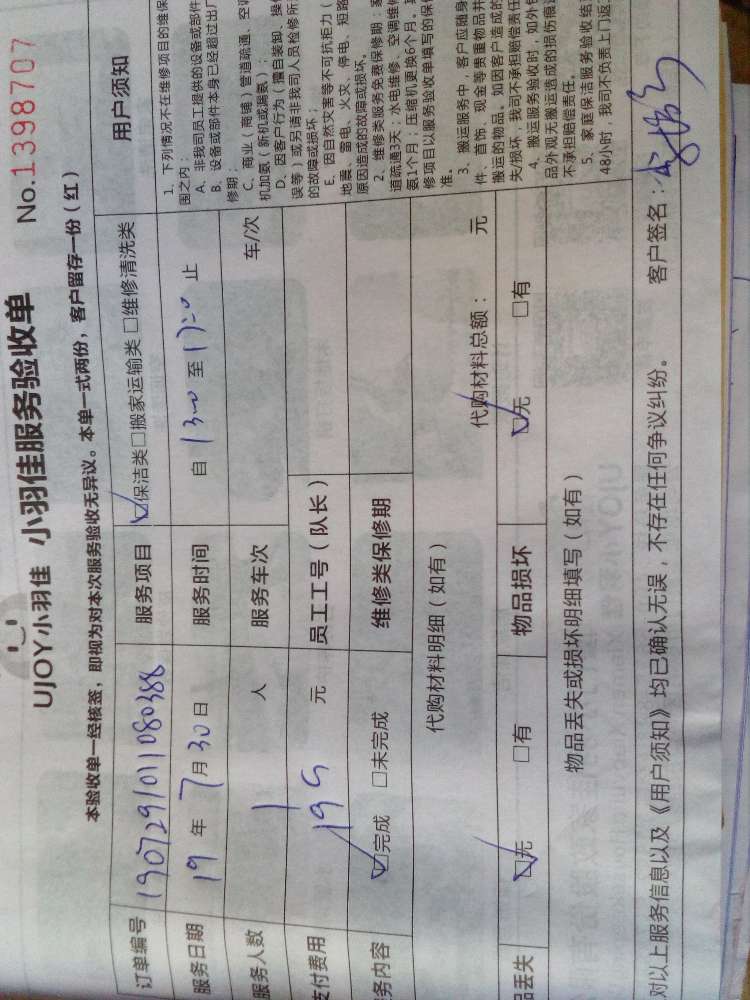 UJOY小羽佳 小羽佳服务验收单 No.1398707
本验收单一经核签，即视为对本次服务验收无异议。本单一式两份，客户留存一份（红）
订单编号 190729101108038 服务项目 ☑保洁类□搬家运输类 □维修清洗类
服务日期 19 年 7 月 30 日 服务时间 自 1300 至 1700 止
服务人数 1 人 服务车次 车/次
支付费用 195 元 员工工号（队长）
务内容 ☑完成 □未完成 维修类保修期
代购材料明细（如有） 代购材料总额： 元
品丢失 ☑无 □有 物品损坏 ☑无 □有
物品丢失或损坏明细填写（如有）
用户须知
1、下列情况不在维修项目的维保
围之内：
A、非我司员工提供的设备或部件
B、设备或部件本身已经超过出厂
修期；
C、商业（商铺）管道疏通、空
机加氨（新机或漏氨）；
D、因客户行为（擅自装卸、操
误等）或另请非我司人员检修所
的故障或损坏；
E、因自然灾害等不可抗拒力（
地震、雷电、火灾、停电、短路
原因造成的故障或损坏。
2、维修类服务免费保修期：
道疏通3天；水电维修、空调维
氨1个月；压缩机更换6个月。
修项目以服务验收单填写的保
准。
3、搬运服务中，客户应随身
件、首饰、现金等贵重物品并
搬运的物品。如因客户造成的
失/损坏，我司不承担赔偿责任
4、搬运服务验收时，如外包
品外观无搬运造成的损伤痕迹
不承担赔偿责任。
5、家庭保洁服务验收结
48小时，我司不负责上门返
对以上服务信息以及《用户须知》均已确认无误，不存在任何争议纠纷。 客户签名：